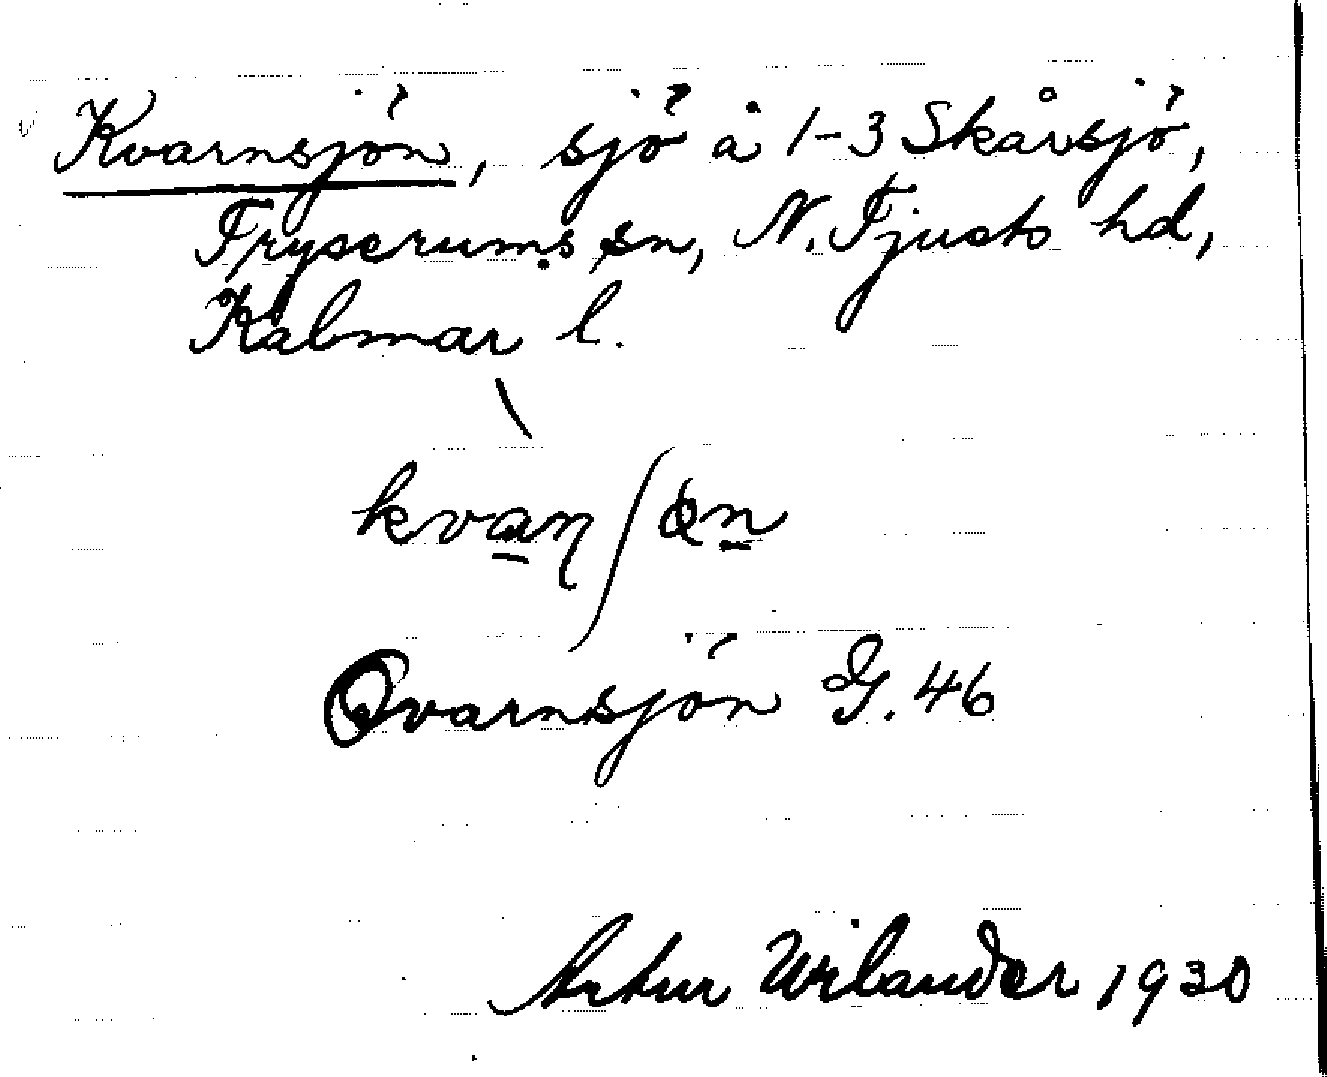 Kvarnsjön, sjö å 1-3 Skårsjö,
Tryserums sn, N. Tjusts hd,
Kalmar l.
Qvarnsjön G. 46
Artur Wilander 1930